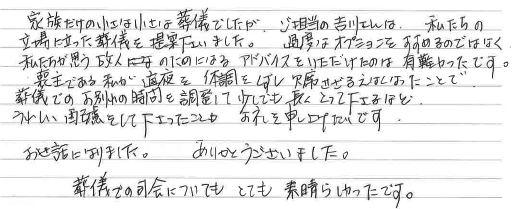 家族だけの小さな小さな葬儀でしたが、ご担当の吉川さんは、私たちの
立場に立った葬儀を提案下いました。 過度なオプションをすすめるのではなく
私たちが思う故人に
のためになるアドバイスをいただけたのは有難かったです。
喪主である私が通夜を体調をくずし欠席させてもらえましたことで
葬儀でのお別れの時間を調整して少しでも長くとって下さるなど、
うれしい配慮をして下さったことも お礼を申し上げたいです。
お世話になりました。 ありがとうございました。
葬儀での司会についてもとても素晴らしかったです。